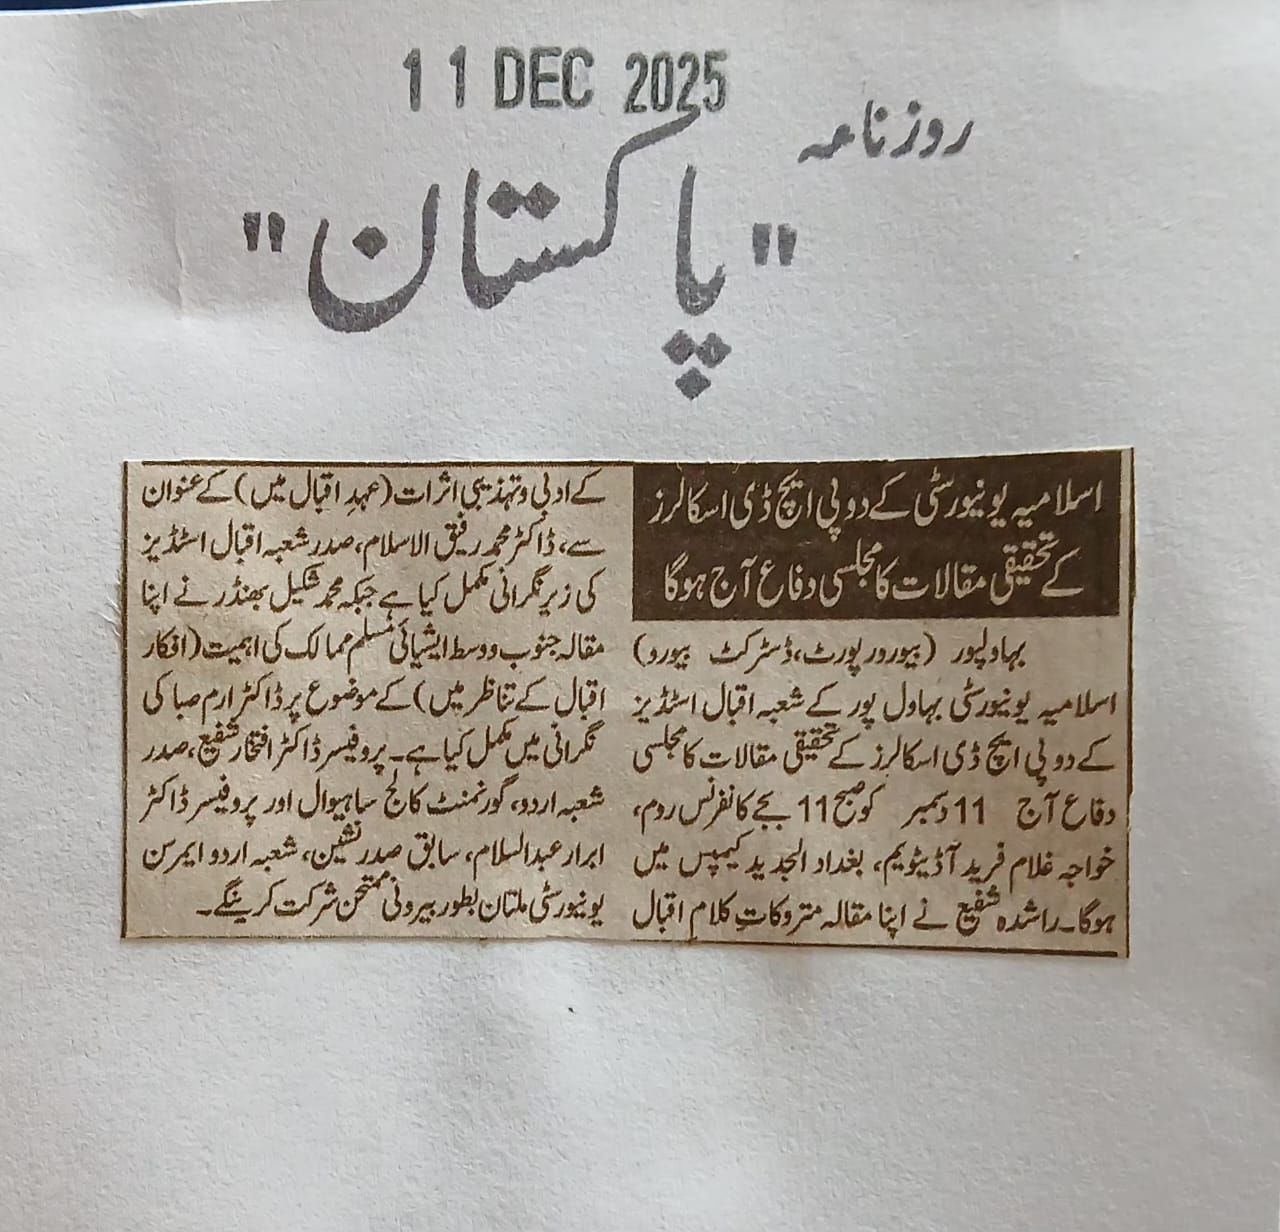 11 DEC 2025
روزنامہ
"پاکستان"
اسلامیہ یونیورسٹی کے دو پی ایچ ڈی اسکالرز
کے تحقیقی مقالات کا مجلسی دفاع آج ہوگا
بہاولپور (بیورورپورٹ، ڈسٹرکٹ بیورو)
اسلامیہ یونیورسٹی بہاول پور کے شعبہ اقبال اسٹڈیز
کے دو پی ایچ ڈی اسکالرز کے تحقیقی مقالات کا مجلسی
دفاع آج 11 دسمبر کو صبح 11 بجے کانفرنس روم،
خواجہ غلام فرید آڈیٹویم، بغداد الجدید کیمپس میں
ہوگا۔ راشدہ شفیع نے اپنا مقالہ متروکاتِ کلام اقبال
کے ادبی و تہذیبی اثرات (عہدِ اقبال میں) کے عنوان
سے، ڈاکٹر محمد رفیق الاسلام، صدر شعبہ اقبال اسٹڈیز
کی زیر نگرانی مکمل کیا ہے جبکہ محمد شکیل بھنڈر نے اپنا
مقالہ جنوب و وسط ایشیائی مسلم ممالک کی اہمیت (افکار
اقبال کے تناظر میں) کے موضوع پر ڈاکٹر ارم صبا کی
نگرانی میں مکمل کیا ہے۔ پروفیسر ڈاکٹر افتخار شفیع، صدر
شعبہ اردو، گورنمنٹ کالج ساہیوال اور پروفیسر ڈاکٹر
ابرار عبدالسلام، سابق صدر نشین، شعبہ اردو ایمرسن
یونیورسٹی ملتان بطور بیرونی ممتحن شرکت کرینگے۔